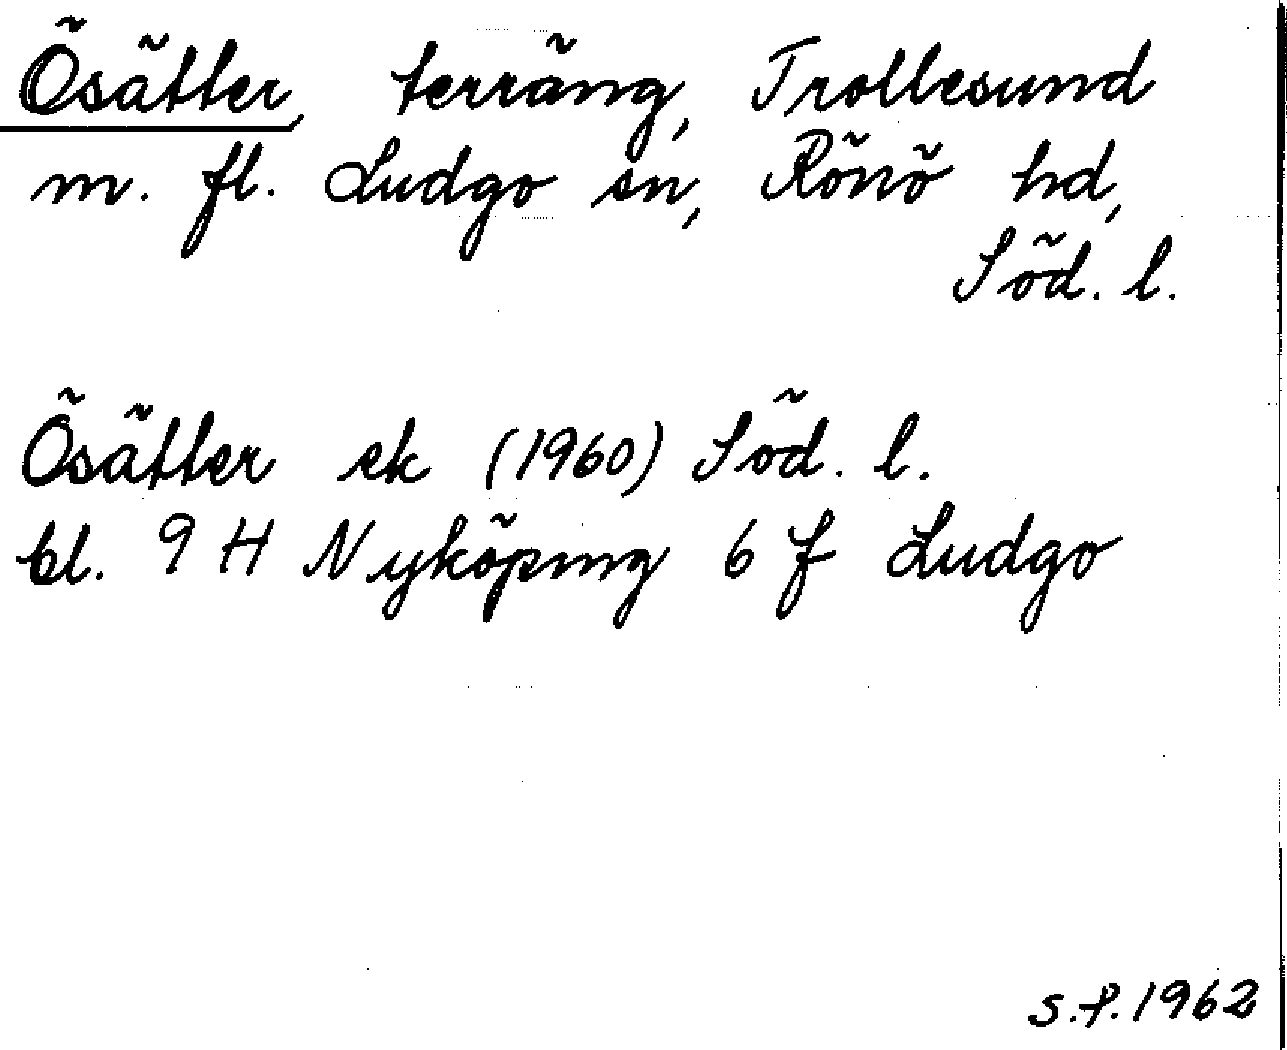 Ösätter, terräng, Trollesund
m. fl. Ludgo sn, Rönö hd,
Söd. l.
Ösätter ek (1960) Söd. l.
bl. 9 H Nyköping 6 f Ludgo
S.f. 1962